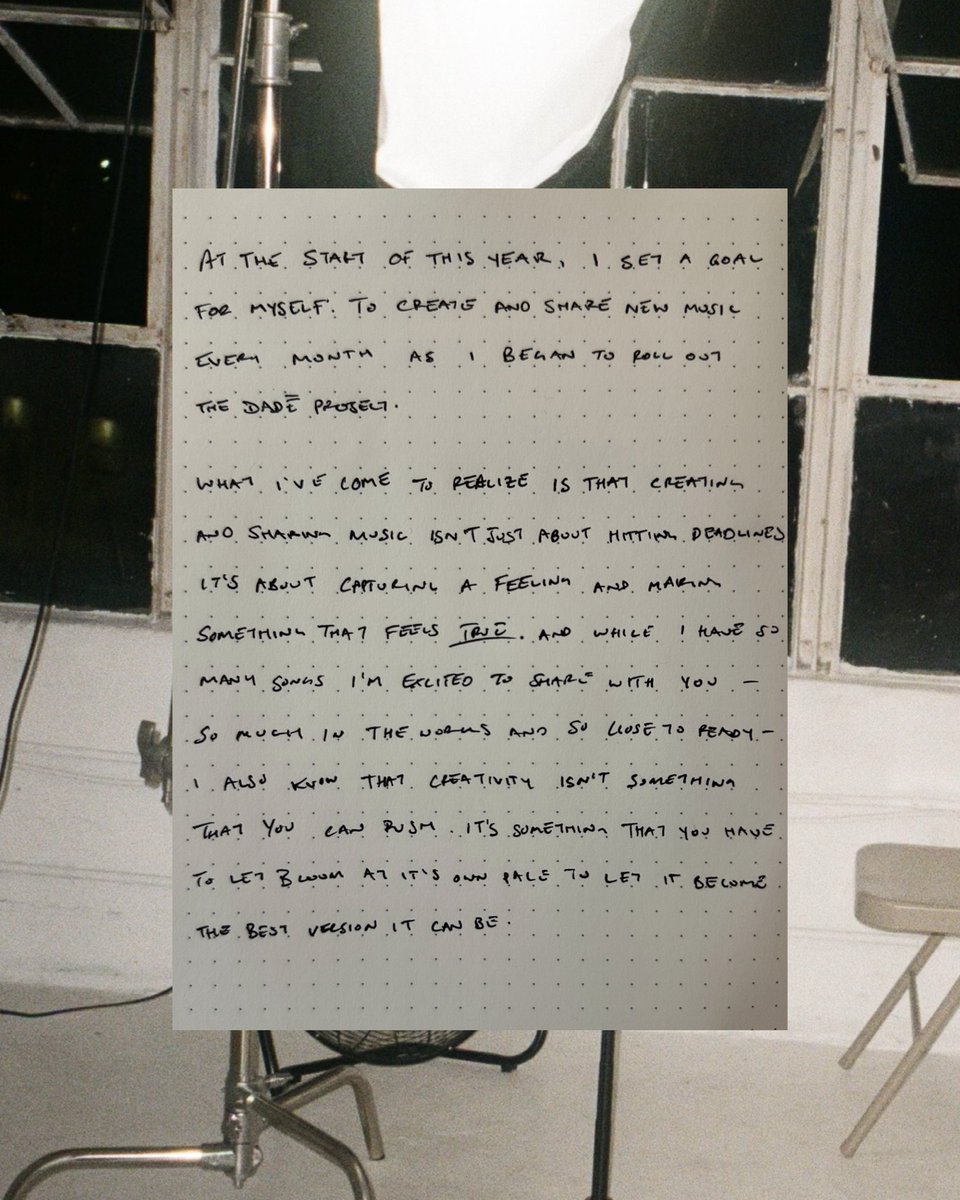 AT THE START OF THIS YEAR, I SET A GOAL
FOR MYSELF. TO CREATE AND SHARE NEW MUSIC
EVERY MONTH AS I BEGAN TO ROLL OUT
THE DADĒ PROJECT.
WHAT I'VE COME TO REALIZE IS THAT CREATING
AND SHARING MUSIC ISN'T JUST ABOUT HITTING DEADLINES
IT'S ABOUT CAPTURING A FEELING AND MAKING
SOMETHING THAT FEELS TRUE. AND WHILE I HAVE SO
MANY SONGS I'M EXCITED TO SHARE WITH YOU —
SO MUCH IN THE WORKS AND SO CLOSE TO READY —
I ALSO KNOW THAT CREATIVITY ISN'T SOMETHING
THAT YOU CAN RUSH. IT'S SOMETHING THAT YOU HAVE
TO LET BLOOM AT IT'S OWN PACE TO LET IT BECOME
THE BEST VERSION IT CAN BE.